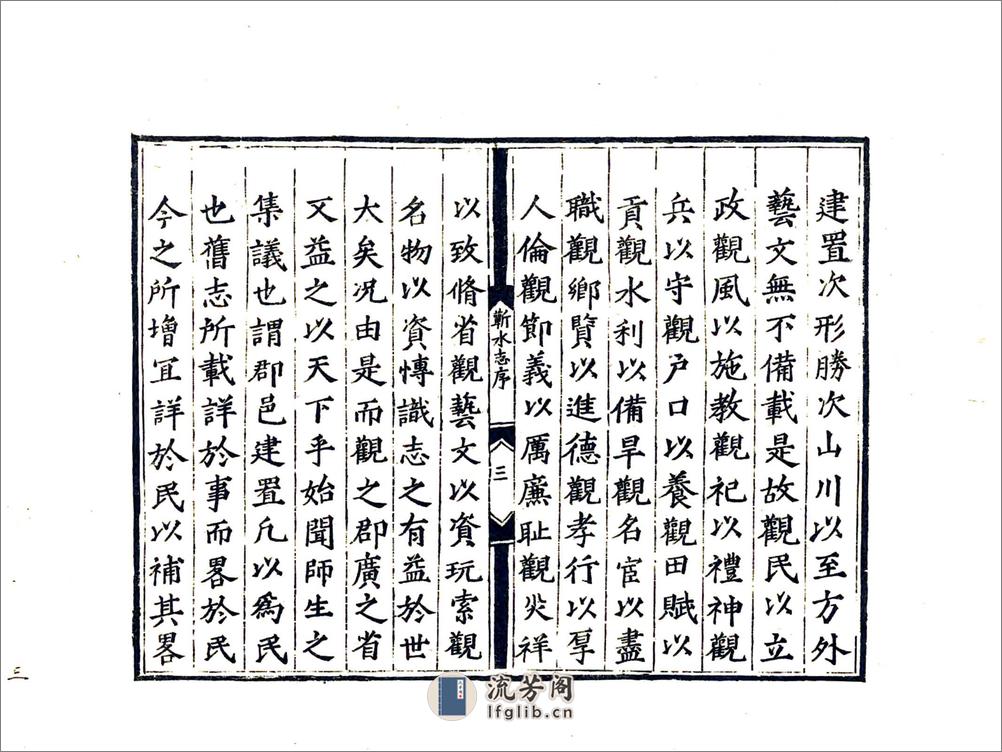 建置次形勝次山川以至方外
藝文無不備載是故觀民以立
政觀風以施教觀祀以禮神觀
兵以守觀户口以養觀田賦以
貢觀水利以備旱觀名宦以盡
職觀鄉賢以進德觀孝行以厚
人倫觀節義以厲廉耻觀災祥
蘄水志序
三
以致脩省觀藝文以資玩索觀
名物以資博識志之有益於世
大矣况由是而觀之郡廣之省
又益之以天下乎始聞師生之
集議也謂郡邑建置凡以為民
也舊志所載詳於事而畧於民
今之所增宜詳於民以補其畧
三
流芳阁
lfglib.cn